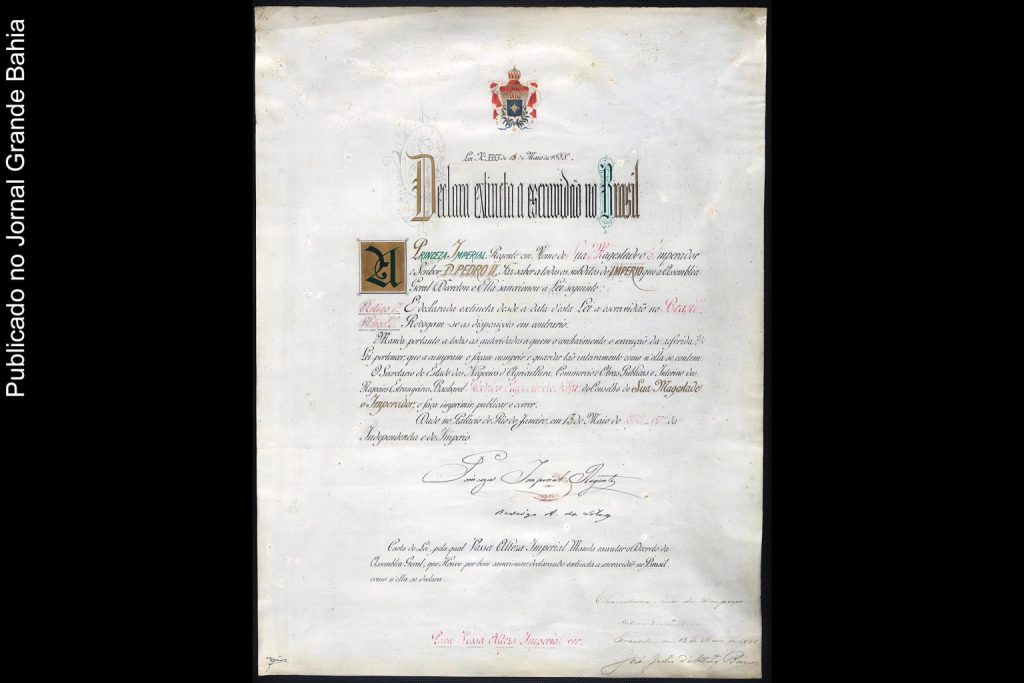 Publicado no Jornal Grande Bahia
Lei Nº 3353 de 13 de Maio de 1888.
Declara extincta a escravidão no Brasil
A PRINCEZA IMPERIAL Regente em Nome de Sua Magestade o Imperador
o Senhor D. PEDRO II, Faz saber a todos os subditos do IMPERIO que a Assembléa
Geral Decretou e Ella sanccionou a Lei seguinte:
Artigo 1º É declarada extincta desde a data d'esta Lei a escravidão no Brasil.
Revogam-se as disposições em contrario.
Manda portanto a todas as autoridades a quem o conhecimento e execução da referida
Lei pertencer, que a cumpram e façam cumprir e guardar tão inteiramente como n'ella se contem.
O Secretario de Estado dos Negocios d'Agricultura, Commercio e Obras Publicas e Interino dos
Negocios Estrangeiros, Bacharel Rodrigo Augusto da Silva do Conselho de Sua Magestade
o Imperador, o faça imprimir, publicar e correr.
Dado no Palacio do Rio de Janeiro, em 13 de Maio de 1888 67º da
Independencia e do Imperio.
Princeza Imperial Regente
Rodrigo A. da Silva
Carta de Lei, pela qual Vossa Alteza Imperial Manda executar o Decreto da
Assembléa Geral, que Houve por bem sanccionar declarando extincta a escravidão no Brasil,
como n'ella se declara.
Chancellaria mór do Imperio
Para Vossa Alteza Imperial ver.
Transitou em 13 de Maio de 1888
José Julio d'Albuqº Barros